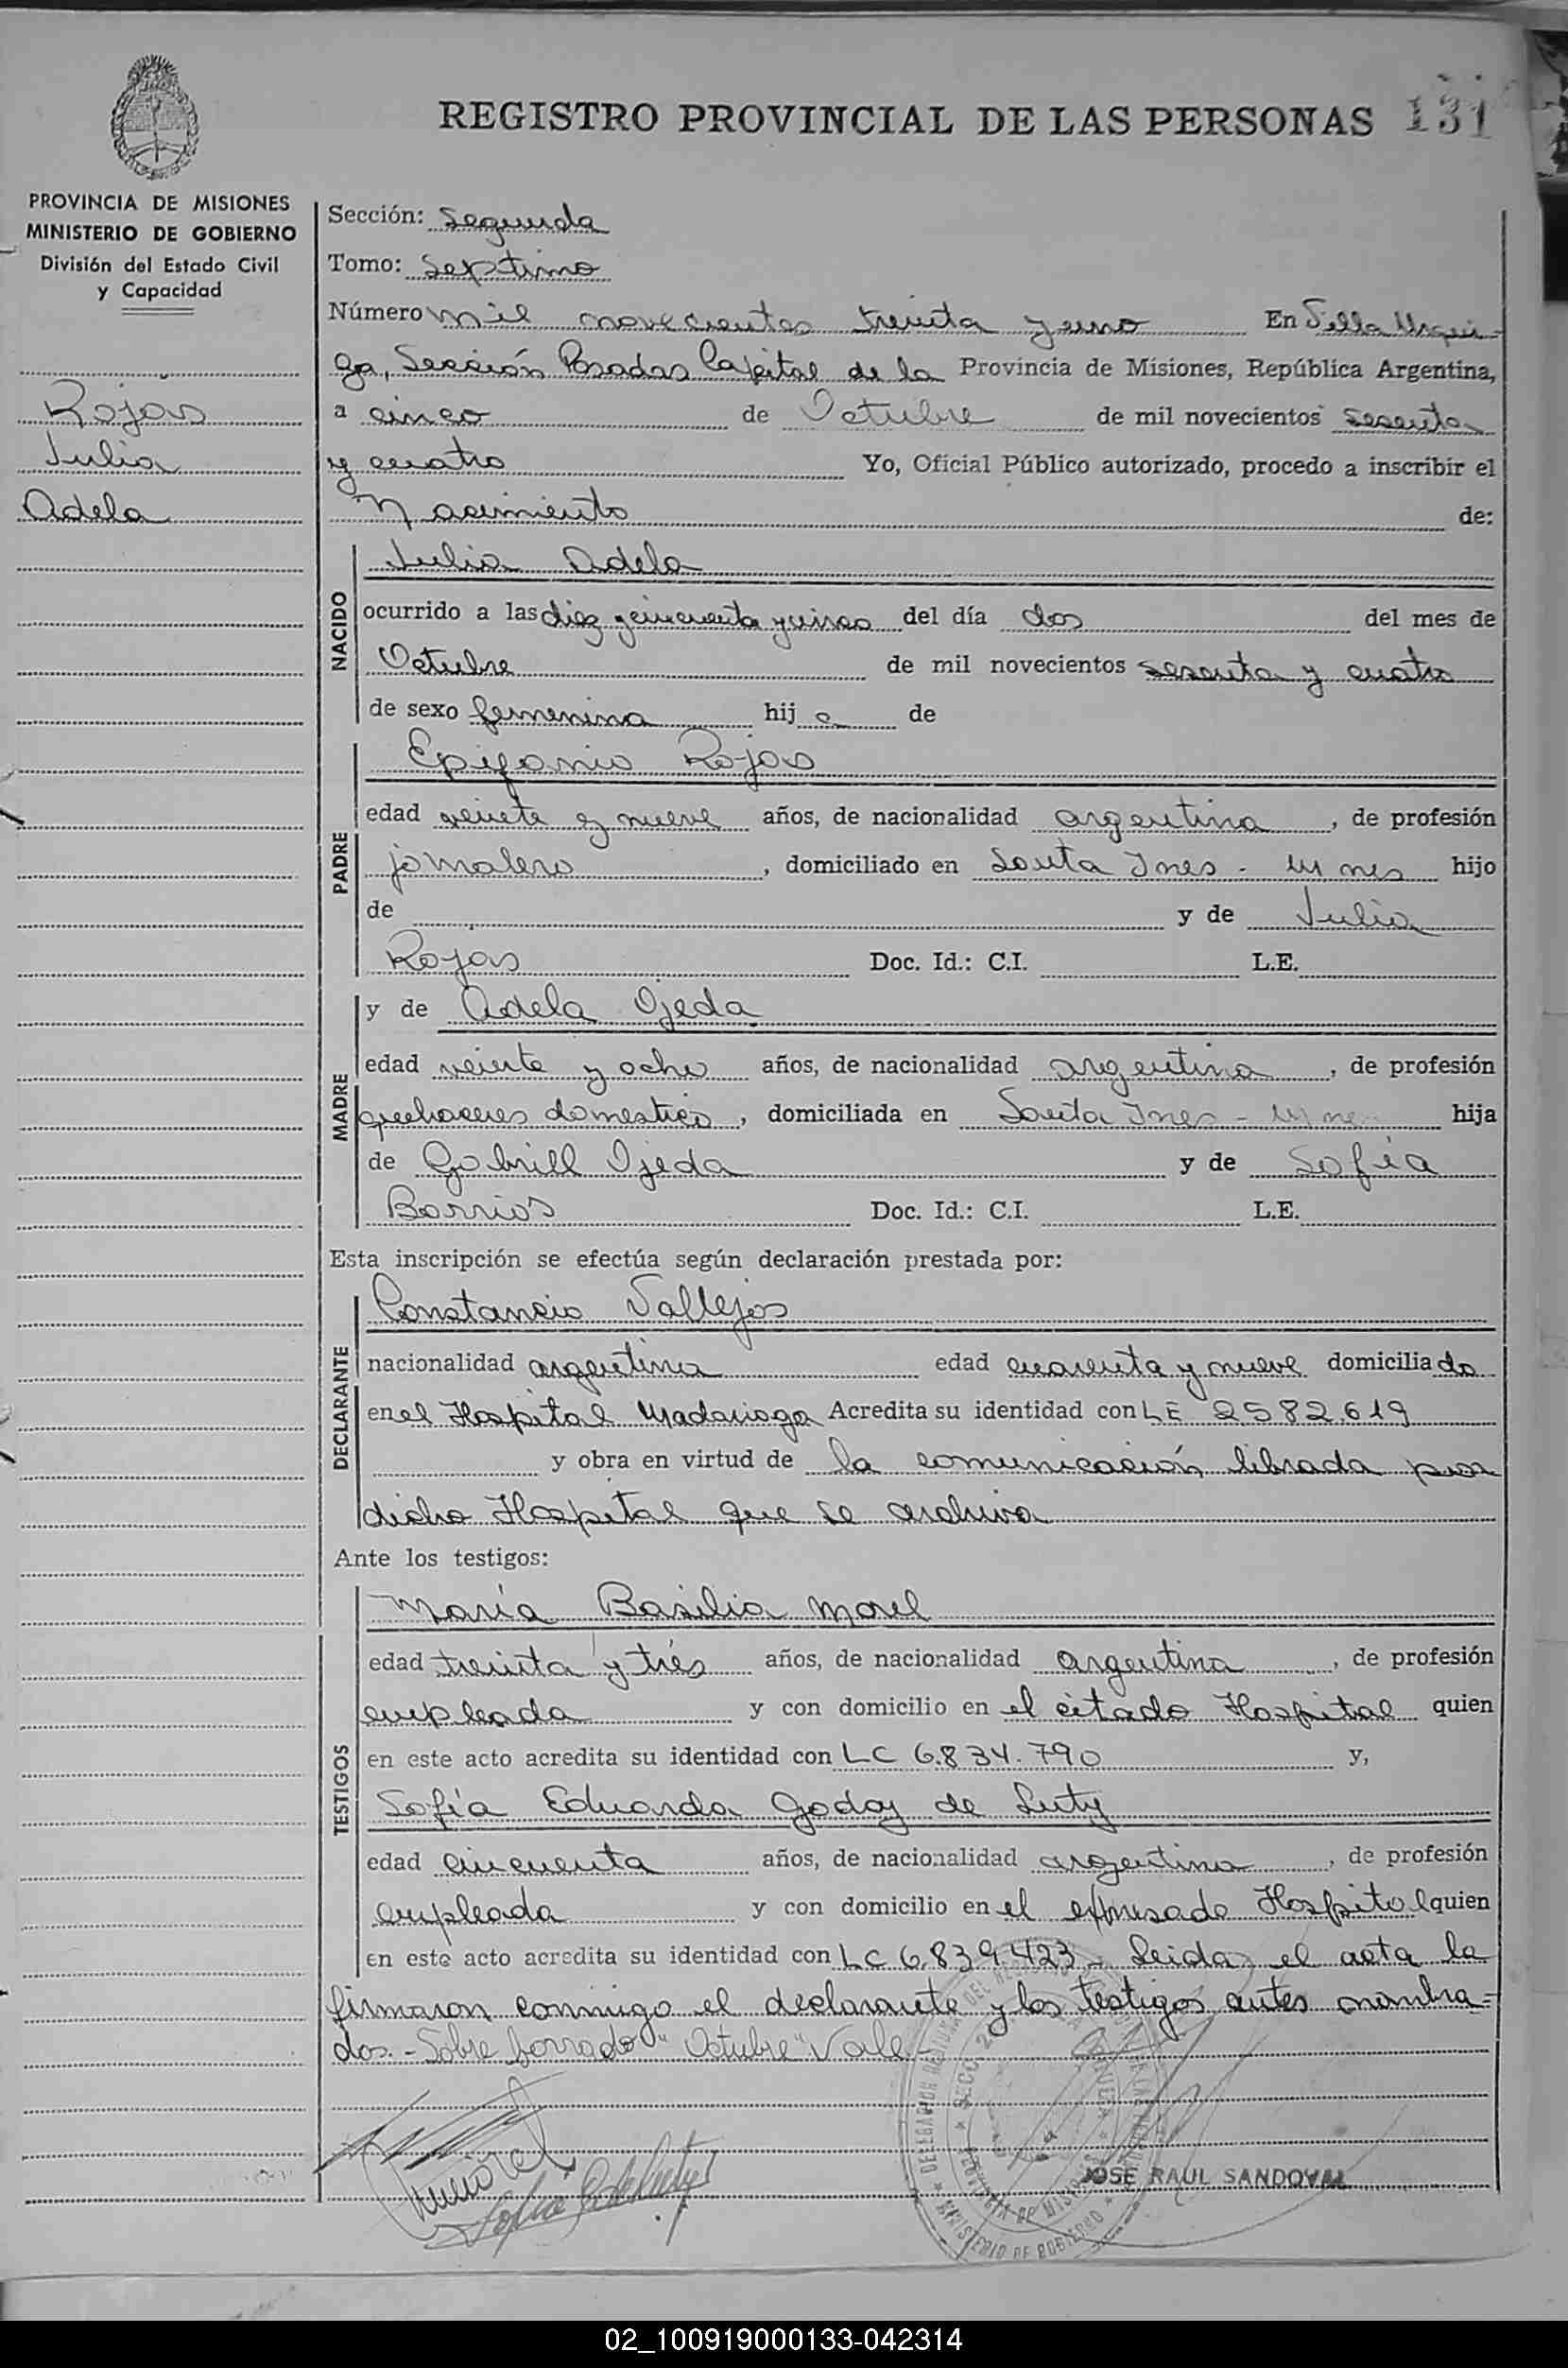 REGISTRO PROVINCIAL DE LAS PERSONAS 131
PROVINCIA DE MISIONES
MINISTERIO DE GOBIERNO
División del Estado Civil
y Capacidad
Rojas
Julia
Adela
Sección: Segunda
Tomo: Septimo
Número mil novecientos treinta y uno En Villa Urqui-
za, Sección Posadas Capital de la Provincia de Misiones, República Argentina,
a cinco de Octubre de mil novecientos sesenta
y cuatro Yo, Oficial Público autorizado, procedo a inscribir el
Nacimiento de:
NACIDO
Julia Adela
ocurrido a las diez y cincuenta y cinco del día dos del mes de
Octubre de mil novecientos sesenta y cuatro
de sexo femenina hija de
PADRE
Epifanio Rojas
edad veinte y nueve años, de nacionalidad argentina, de profesión
jornalero, domiciliado en Santa Ines - hijo
de y de Julia
Rojas Doc. Id.: C.I. L.E.
MADRE
y de Adela Ojeda
edad veinte y ocho años, de nacionalidad argentina, de profesión
quehaceres domestico, domiciliada en Santa Ines - hija
de Gabriell Ojeda y de Sofía
Barrios Doc. Id.: C.I. L.E.
Esta inscripción se efectúa según declaración prestada por:
DECLARANTE
Constancio Vallejos
nacionalidad argentina edad cuarenta y nueve domiciliado
en el Hospital Madariaga Acredita su identidad con LE 2582.619
y obra en virtud de la comunicación librada por
dicho Hospital que se archiva
Ante los testigos:
TESTIGOS
María Basilia Morel
edad treinta y trés años, de nacionalidad argentina, de profesión
empleada y con domicilio en el citado Hospital quien
en este acto acredita su identidad con LC 6.834.790 y,
Sofía Eduarda Godoy de Luty
edad cincuenta años, de nacionalidad argentina, de profesión
empleada y con domicilio en el expresado Hospital quien
en este acto acredita su identidad con LC 6.839.423 - Leida el acta la
firmaron conmigo el declarante y los testigos antes nombra=
dos. - Sobre borrado "Octubre" Vale -
JOSE RAUL SANDOVAL
02_100919000133-042314